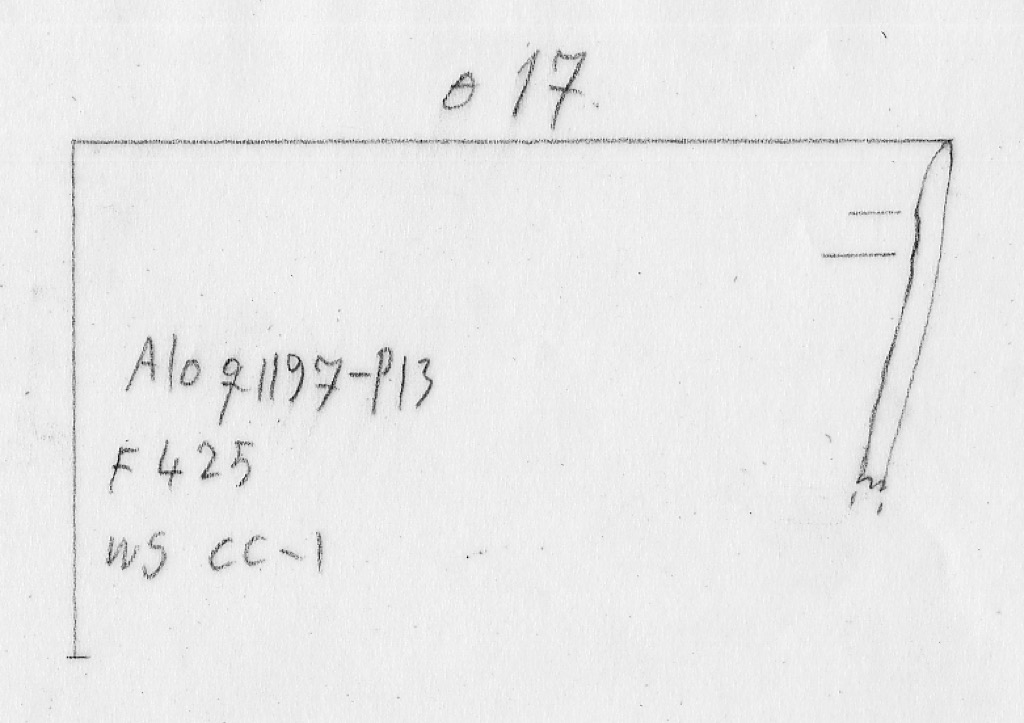 ø 17
A10 q1197-P13
F 425
WS CC-1